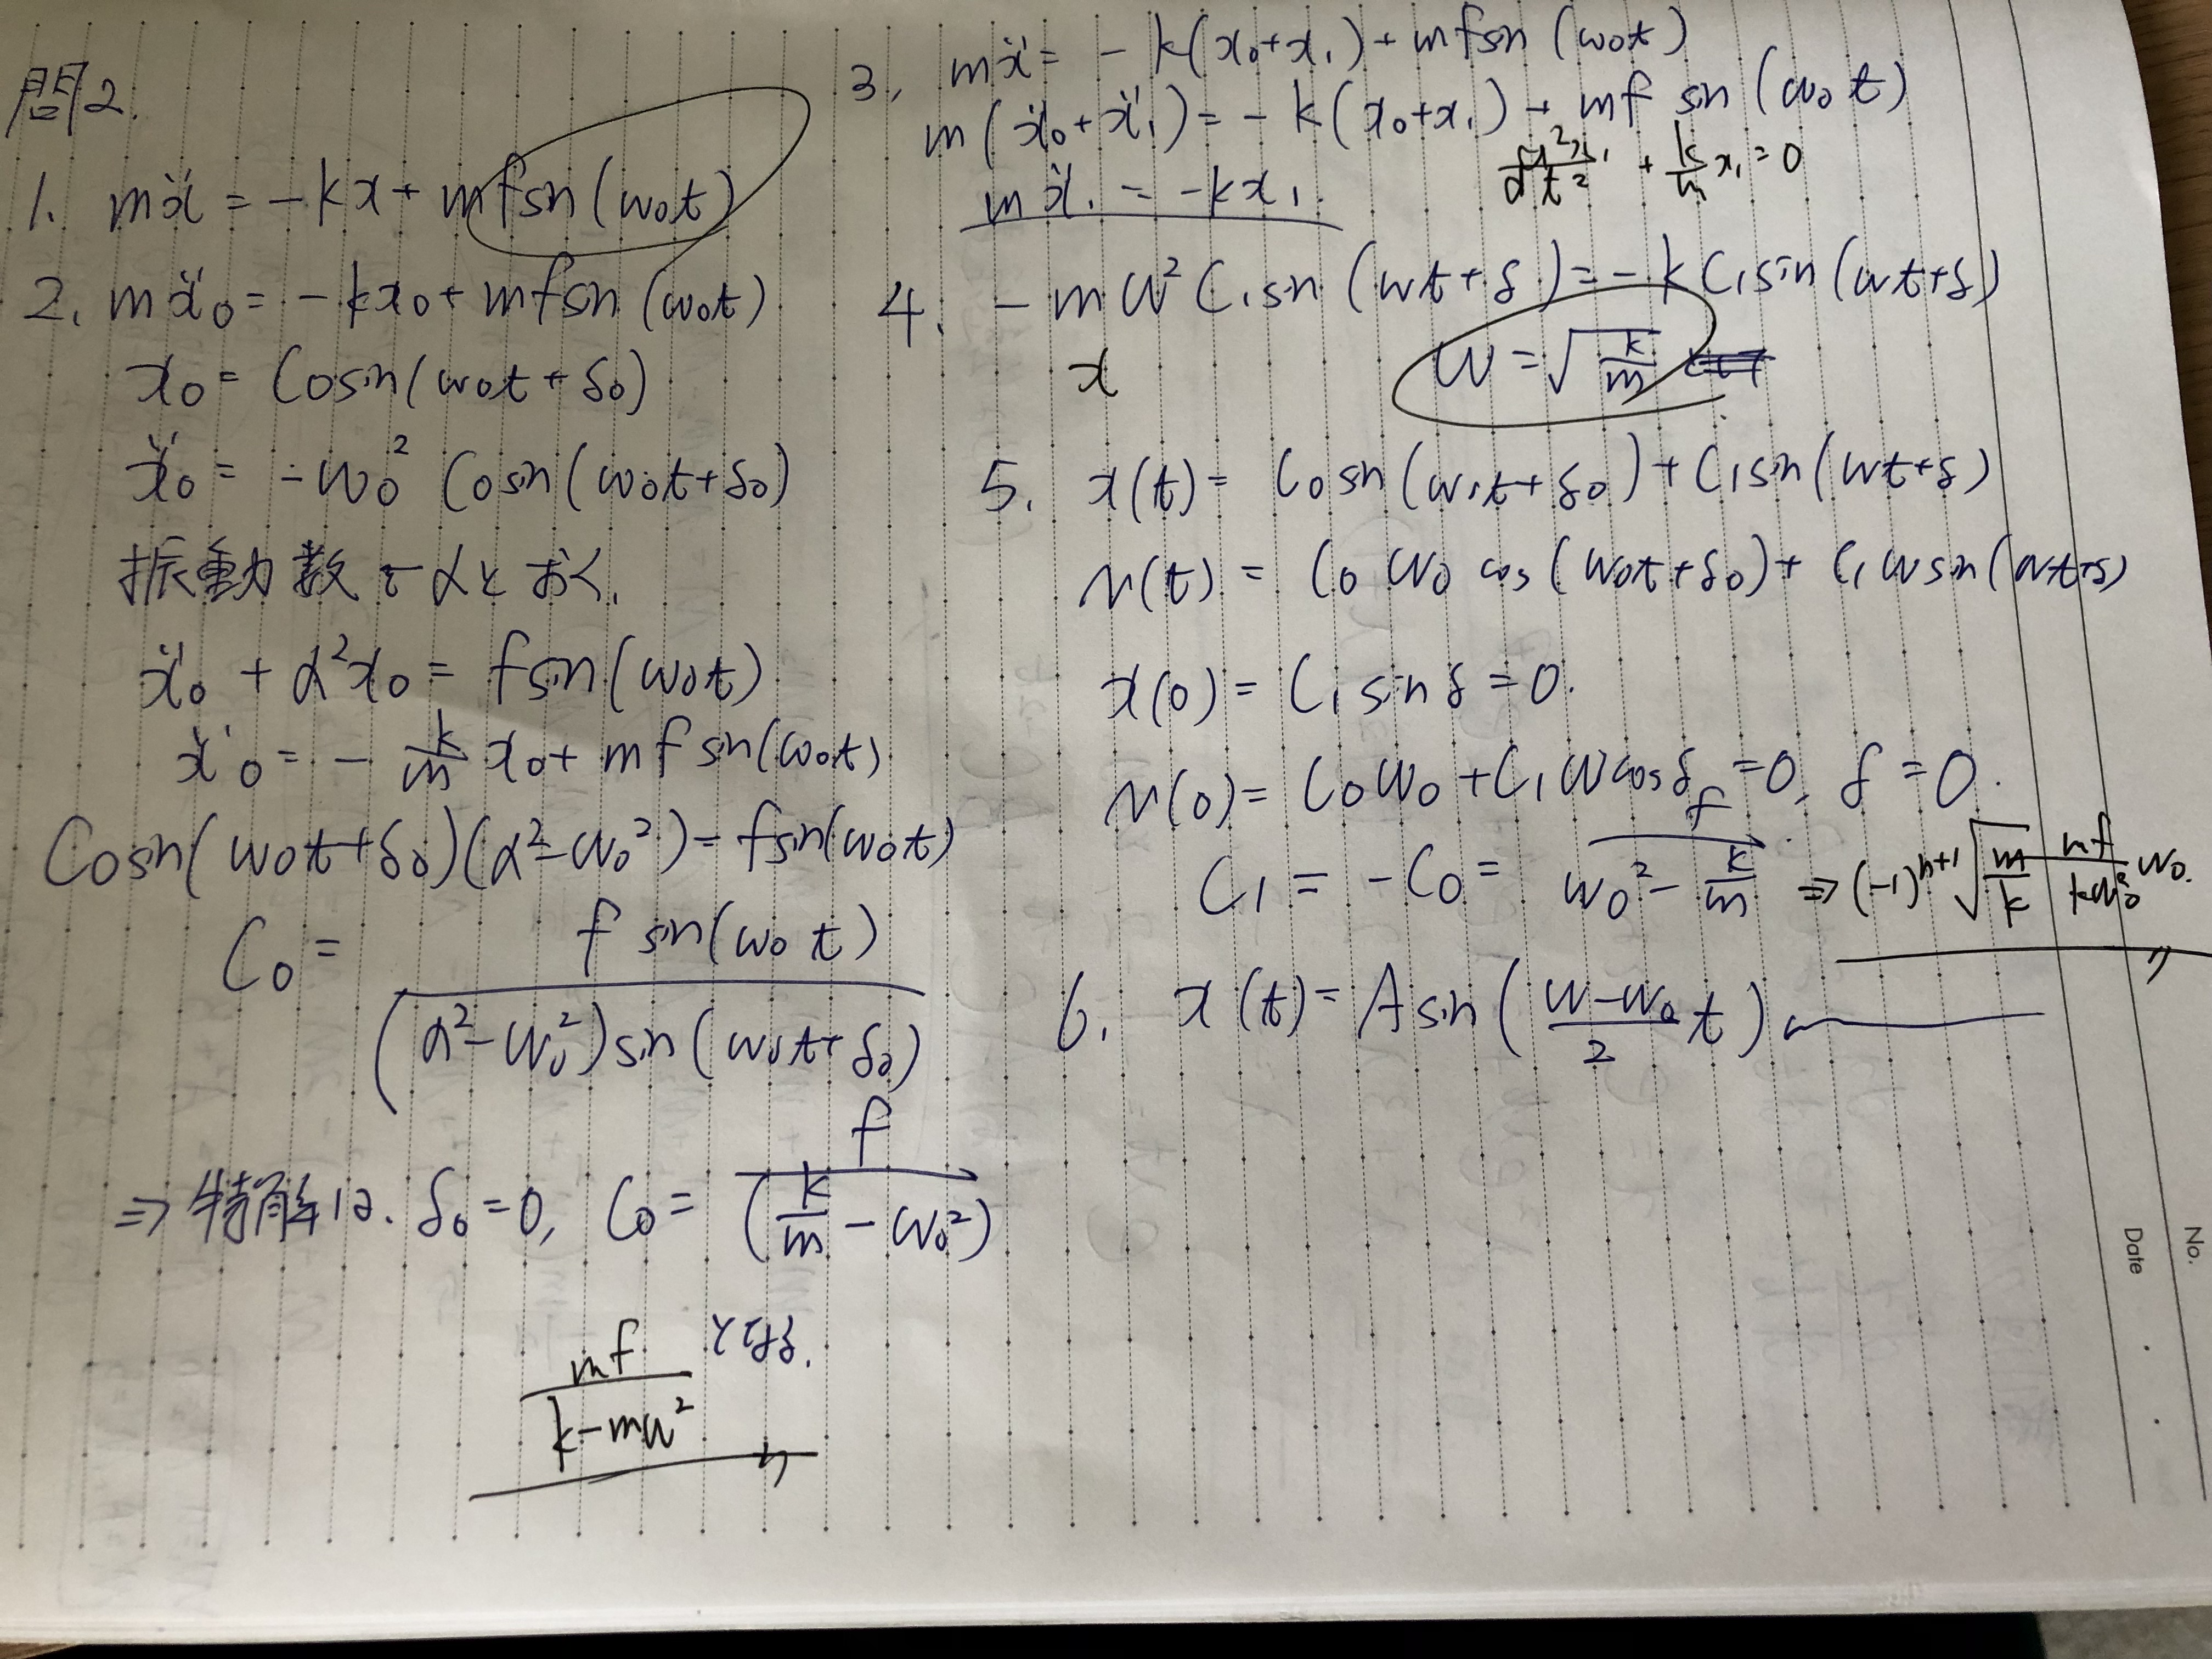 問2.
1. mẍ = -kx + mfsin(ω₀t)
2. mẍ₀ = -kx₀ + mfsin(ω₀t)
x₀ = C₀sin(ω₀t + δ₀)
ẍ₀ = -ω₀² C₀sin(ω₀t+δ₀)
振動数をαとおく.
ẍ₀ + α²x₀ = fsin(ω₀t)
ẍ₀ = - k/m x₀ + mfsin(ω₀t)
C₀sin(ω₀t+δ₀)(α²-ω₀²) = fsin(ω₀t)
C₀ = f sin(ω₀t) / (α²-ω₀²)sin(ω₀t+δ₀)
⇒ 特解は. δ₀=0, C₀ = f / (k/m - ω₀²)
となる.
mf / k-mω²
3. mẍ = -k(x₀+x₁) + mfsin(ω₀t)
m(ẍ₀+ẍ₁) = -k(x₀+x₁) + mf sin(ω₀t)
d²x₁/dt² + k/m x₁ = 0
mẍ₁ = -kx₁.
4. -mω²C₁sin(ωt+δ) = -kC₁sin(ωt+δ)
x ω = √(k/m)
5. x(t) = C₀sin(ω₀t+δ₀) + C₁sin(ωt+δ)
v(t) = C₀ω₀cos(ω₀t+δ₀) + C₁ωsin(ωt+δ)
x(0) = C₁sinδ = 0.
v(0) = C₀ω₀ + C₁ωcosδ = 0, δ = 0.
C₁ = -C₀ = f / ω₀² - k/m ⇒ (-1)ⁿ⁺¹ √(m/k)
6. x(t) = A sin(ω-ω₀/2 t)
No.
Date